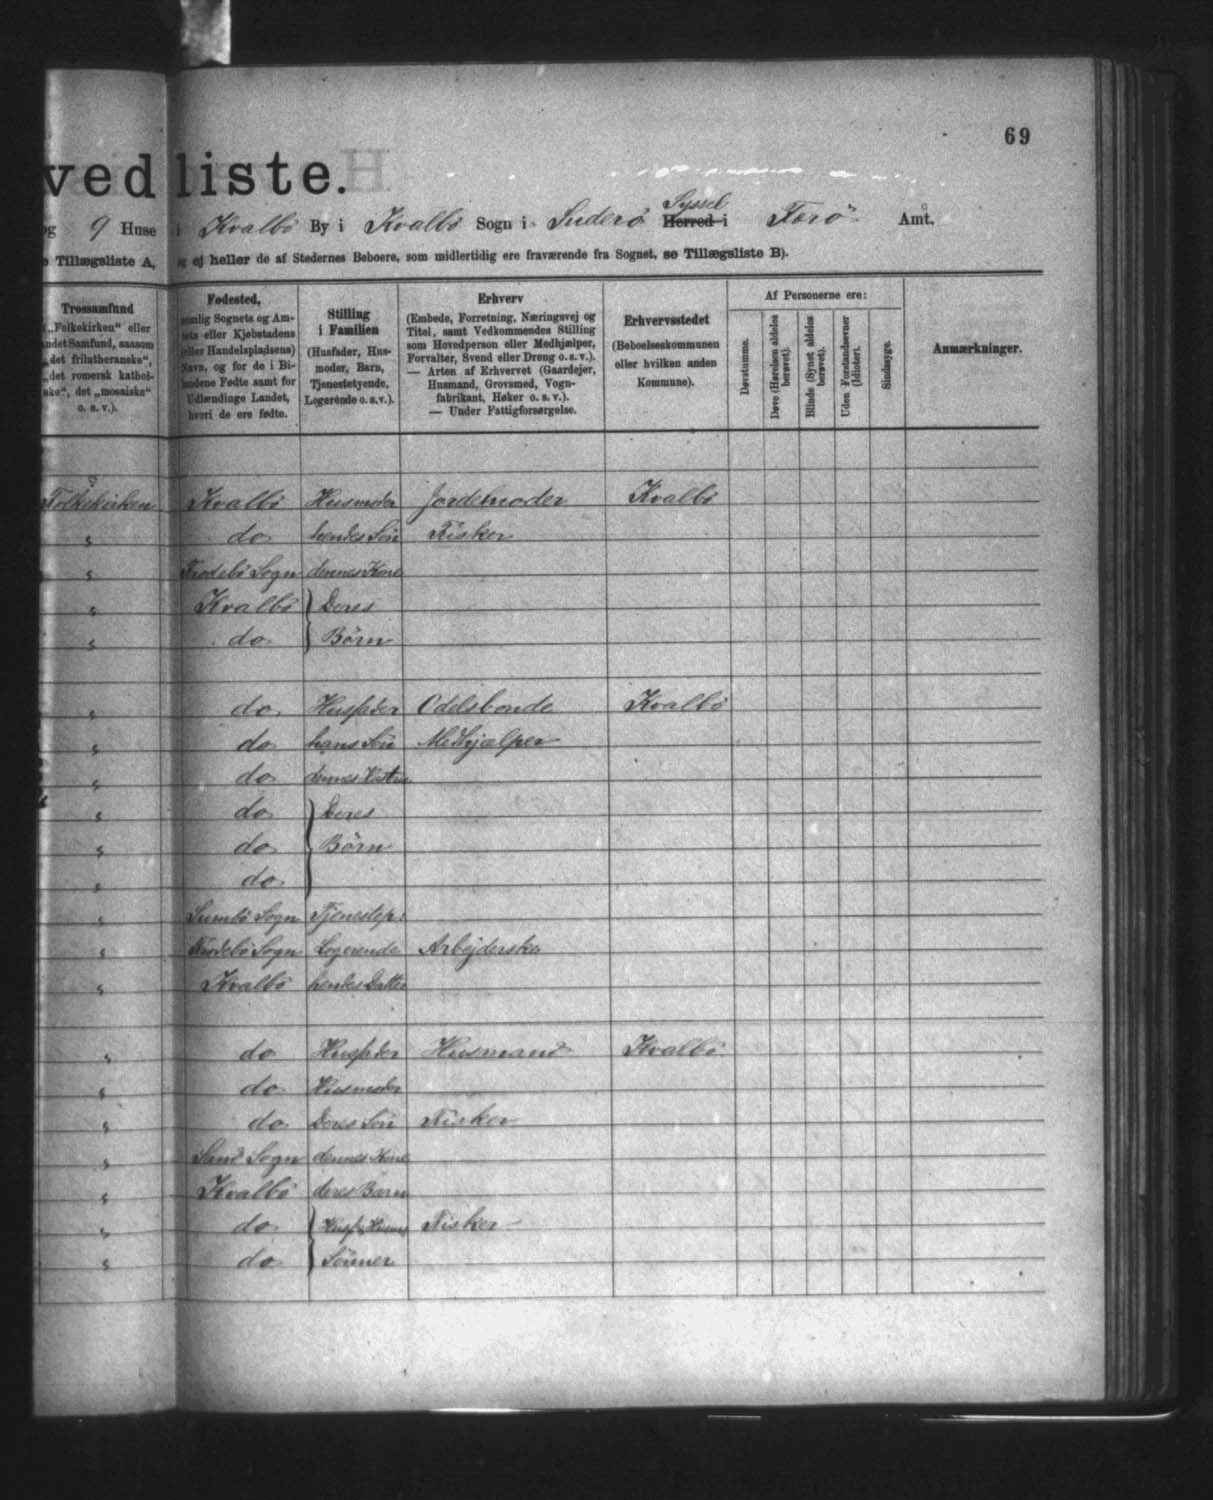 69
vedliste.
og 9 Huse i Kvalbö By i Kvalbö Sogn i Suderö Syssel Herred i Færö Amt.
e Tillægsliste A, og ej heller de af Stedernes Beboere, som midlertidig ere fraværende fra Sognet, se Tillægsliste B).
Trossamfund
(„Folkekirken“ eller
andet Samfund, saasom
„det frilutheranske“,
„det romersk kathol-
ske“, det „mosaiske“
o. s. v.).
Fødested,
nemlig Sognets og Am-
tets eller Kjøbstadens
(eller Handelspladsens)
Navn, og for de i Bi-
landene Fødte samt for
Udlændinge Landet,
hvori de ere fødte.
Stilling
i Familien
(Husfader, Hus-
moder, Barn,
Tjenestetyende,
Logerende o.s.v.).
Erhverv
(Embede, Forretning, Næringsvej og
Titel, samt Vedkommendes Stilling
som Hovedperson eller Medhjælper,
Forvalter, Svend eller Dreng o. s. v.).
— Arten af Erhvervet (Gaardejer,
Husmand, Grovsmed, Vogn-
fabrikant, Høker o. s. v.).
— Under Fattigforsørgelse.
Erhvervsstedet
(Beboelseskommunen
eller hvilken anden
Kommune).
Af Personerne ere:
Døvstumme.
Døve (Hørelsen aldeles
berøvet).
Blinde (Synet aldeles
berøvet).
Uden Forstandsevner
(Idioter).
Sindssyge.
Anmærkninger.
Folkekirken Kvalbö Husmoder Jordemoder Kvalbö
s do hendes Sön Fisker
s Frodebö Sogn dennes Kone
s Kvalbö } Deres
s do } Börn
s do Husfader Odelsbonde Kvalbö
s do hans Sön Medhjælper
s do dennes Hustru
s do } Deres
s do } Börn
s do }
s Sumbö Sogn Tjenestep.
s Frodebö Sogn Logerende Arbejderske
s Kvalbö hendes Datter
s do Husfader Husmand Kvalbö
s do Husmoder
s do Deres Sön Fisker
s Sand Sogn dennes Kone
s Kvalbö deres Barn
s do { Fisker
s do { Sönner